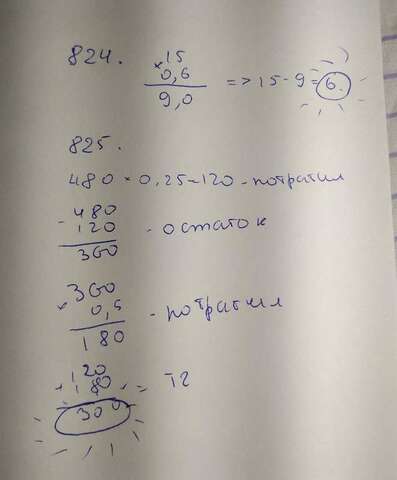 824.
15
× 0,6
9,0
=> 15-9=6.
825.
480 × 0,25=120 - потратил
- 480
120
360
- остаток
360
× 0,5
180
- потратил
120
+ 180
300
тг